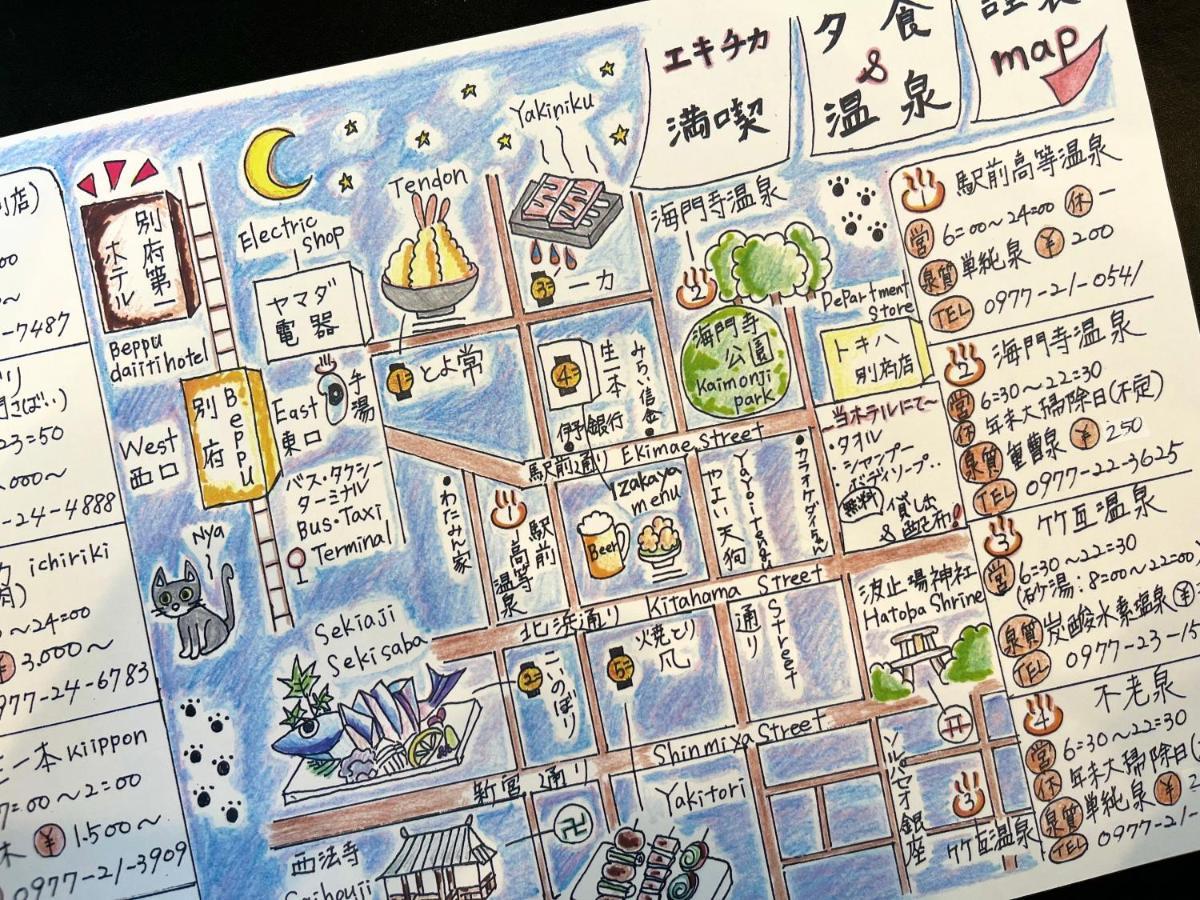 エキチカ
満喫
夕食
&
温泉
謹製
map
別店)
00
-7487
23=50
.000~
-24-4888
ichiriki
~24=00
¥ 3.000~
0977-24-6783
生一本 Kiippon
7=00~2=00
休 ¥ 1.500~
0977-21-3909
別府第一
ホテル
Beppu
daiiti hotel
Electric
Shop
ヤマダ
電器
Tendon
Yakiniku
3
一力
海門寺温泉
2
海門寺
公園
Kaimonji
park
Department
Store
トキハ
別府店
West
西口
別府
Beppu
East
東口
手湯
バス・タクシー
ターミナル
Bus・Taxi
Terminal
Nya
1 とよ常
4 生一本
みらい信金
伊予銀行
駅前通り Ekimae Street
わたみん家
1 駅前
高等
温泉
Izakaya
menu
Beer
やよい天狗
Yayoitengu
カラオケダイちゃん
~当ホテルにて~
・タオル
・シャンプー
・ボディソープ・・
無料 貸し出
& 配布!
北浜通り Kitahama Street
通り
Street
波止場神社
Hatoba Shrine
Sekiaji
Sekisaba
2 こいのぼり
5
新宮通り Shinmiya Street
西法寺
Saihouji
卍
Yakitori
ソルパセオ銀座
3
竹瓦温泉
1 駅前高等温泉
営 6=00~24=00 休 ー
泉質 単純泉 ¥ 200
TEL 0977-21-0541
2 海門寺温泉
営 6=30~22=30
休 年末大掃除日(不定)
泉質 重曹泉 ¥ 250
TEL 0977-22-3625
3 竹瓦温泉
営 6=30~22=30
(砂湯:8=00~22=00)
泉質 炭酸水素塩温泉 ¥
TEL 0977-23-15
4 不老泉
営 6=30~22=30
休 年末大掃除日(
泉質 単純泉 ¥ 2
TEL 0977-21-